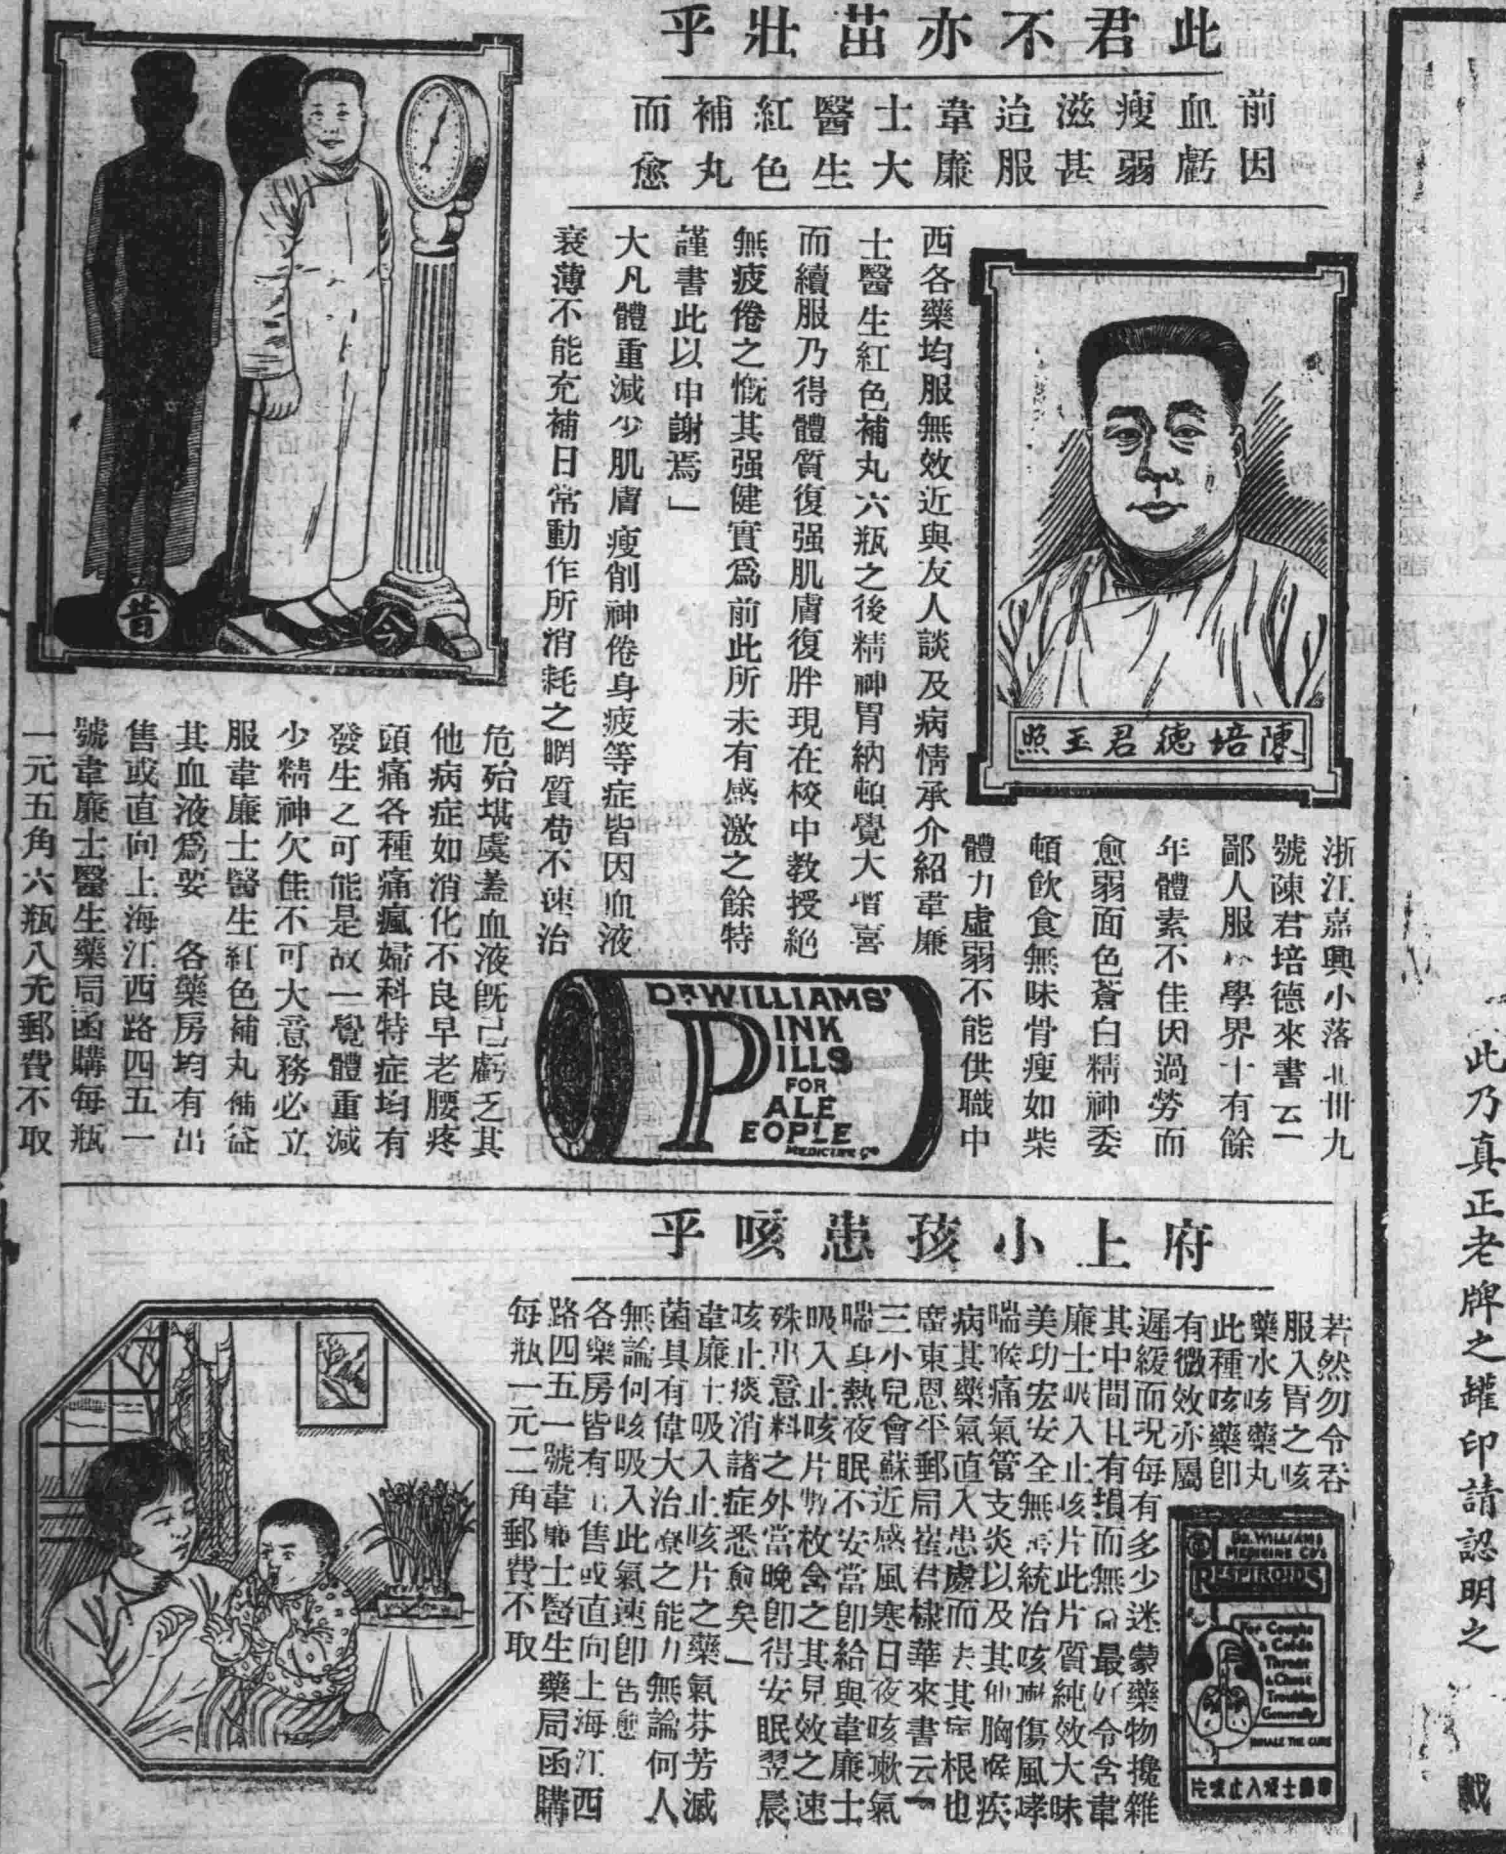 此君不亦茁壯乎
前血瘦滋迨韋士醫紅補而
因虧弱甚服廉大生色丸愈
陳培德君玉照
浙江嘉興小落北卅九
號陳君培德來書云「
鄙人服務學界十有餘
年體素不佳因過勞而
愈弱面色蒼白精神委
頓飲食無味骨瘦如柴
體力虛弱不能供職中
西各藥均服無效近與友人談及病情承介紹韋廉
士醫生紅色補丸六瓶之後精神胃納頓覺大增喜
而續服乃得體質復强肌膚復胖現在校中教授絕
無疲倦之慨其强健實爲前此所未有感激之餘特
謹書此以申謝焉」
大凡體重減少肌膚瘦削神倦身疲等症皆因血液
衰薄不能充補日常動作所消耗之體質苟不速治
危殆堪虞蓋血液旣已虧乏其
他病症如消化不良早老腰疼
頭痛各種痛瘋婦科特症均有
發生之可能是故一覺體重減
少精神欠佳不可大意務必立
服韋廉士醫生紅色補丸補益
其血液爲要 各藥房均有出
售或直向上海江西路四五一
號韋廉士醫生藥局函購每瓶
一元五角六瓶八元郵費不取
昔
今
DR WILLIAMS'
PINK
PILLS
FOR
PALE
PEOPLE
MEDICINE Co
府上小孩患咳乎
若然勿令吞
服入胃之咳
藥水咳藥丸
此種咳藥卽
有微效亦屬
遲緩而況每有多少迷蒙藥物攙雜
其中間且有損而無益最好令含韋
廉士吸入止咳片此片質純效大味
美功宏安全無害統治咳嗽傷風哮
喘喉痛氣管支炎以及其他胸喉疾
病其藥氣直入患處而去其病根也
廣東恩平郵局崔君棣華來書云「
三小兒會蘇近感風寒日夜咳嗽氣
喘身熱夜眠不安當卽給與韋廉士
吸入止咳片數枚含之其見效之速
殊出意料之外當晚卽得安眠翌晨
咳止痰消諸症悉愈矣」
韋廉士吸入止咳片之藥氣芬芳滅
菌具有偉大治療之能力無論何人
無論何咳吸入此氣速卽告愈
各藥房皆有出售或直向上海江西
路四五一號韋廉士醫生藥局函購
每瓶一元二角郵費不取
DR. WILLIAMS
MEDICINE CO'S
RESPIROIDS
For Coughs
& Colds
Throat
& Chest
Troubles
Generally
INHALE THE CURE
韋廉士吸入止咳片
此乃真正老牌之罐印請認明之